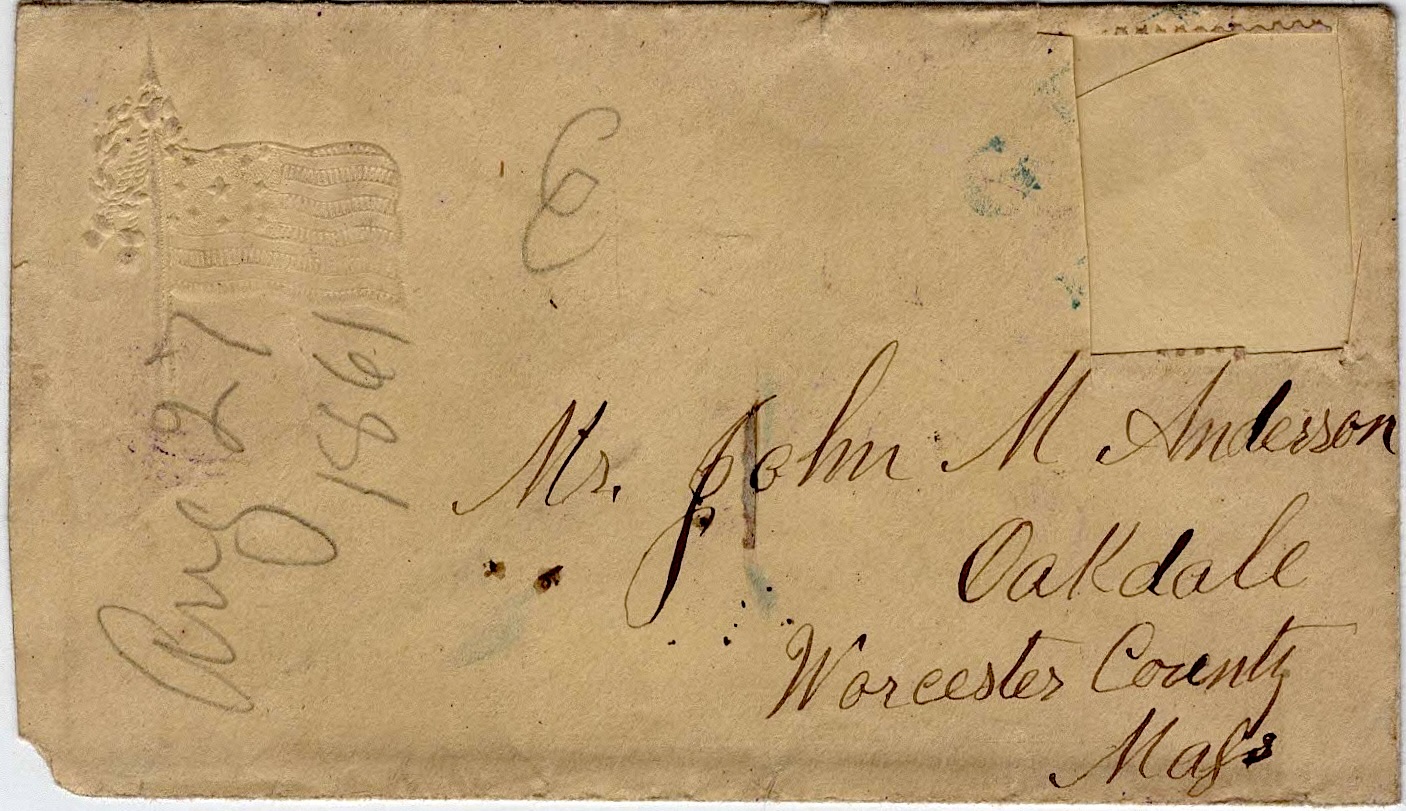 Aug 27
1861
6
Mr. John M Anderson
Oakdale
Worcester County
Mass